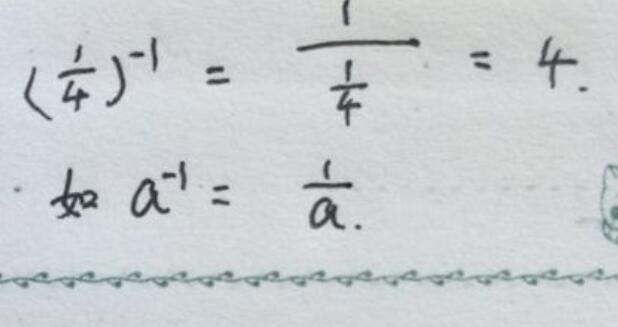 (1/4)⁻¹ = 1/(1/4) = 4.
如 a⁻¹ = 1/a.